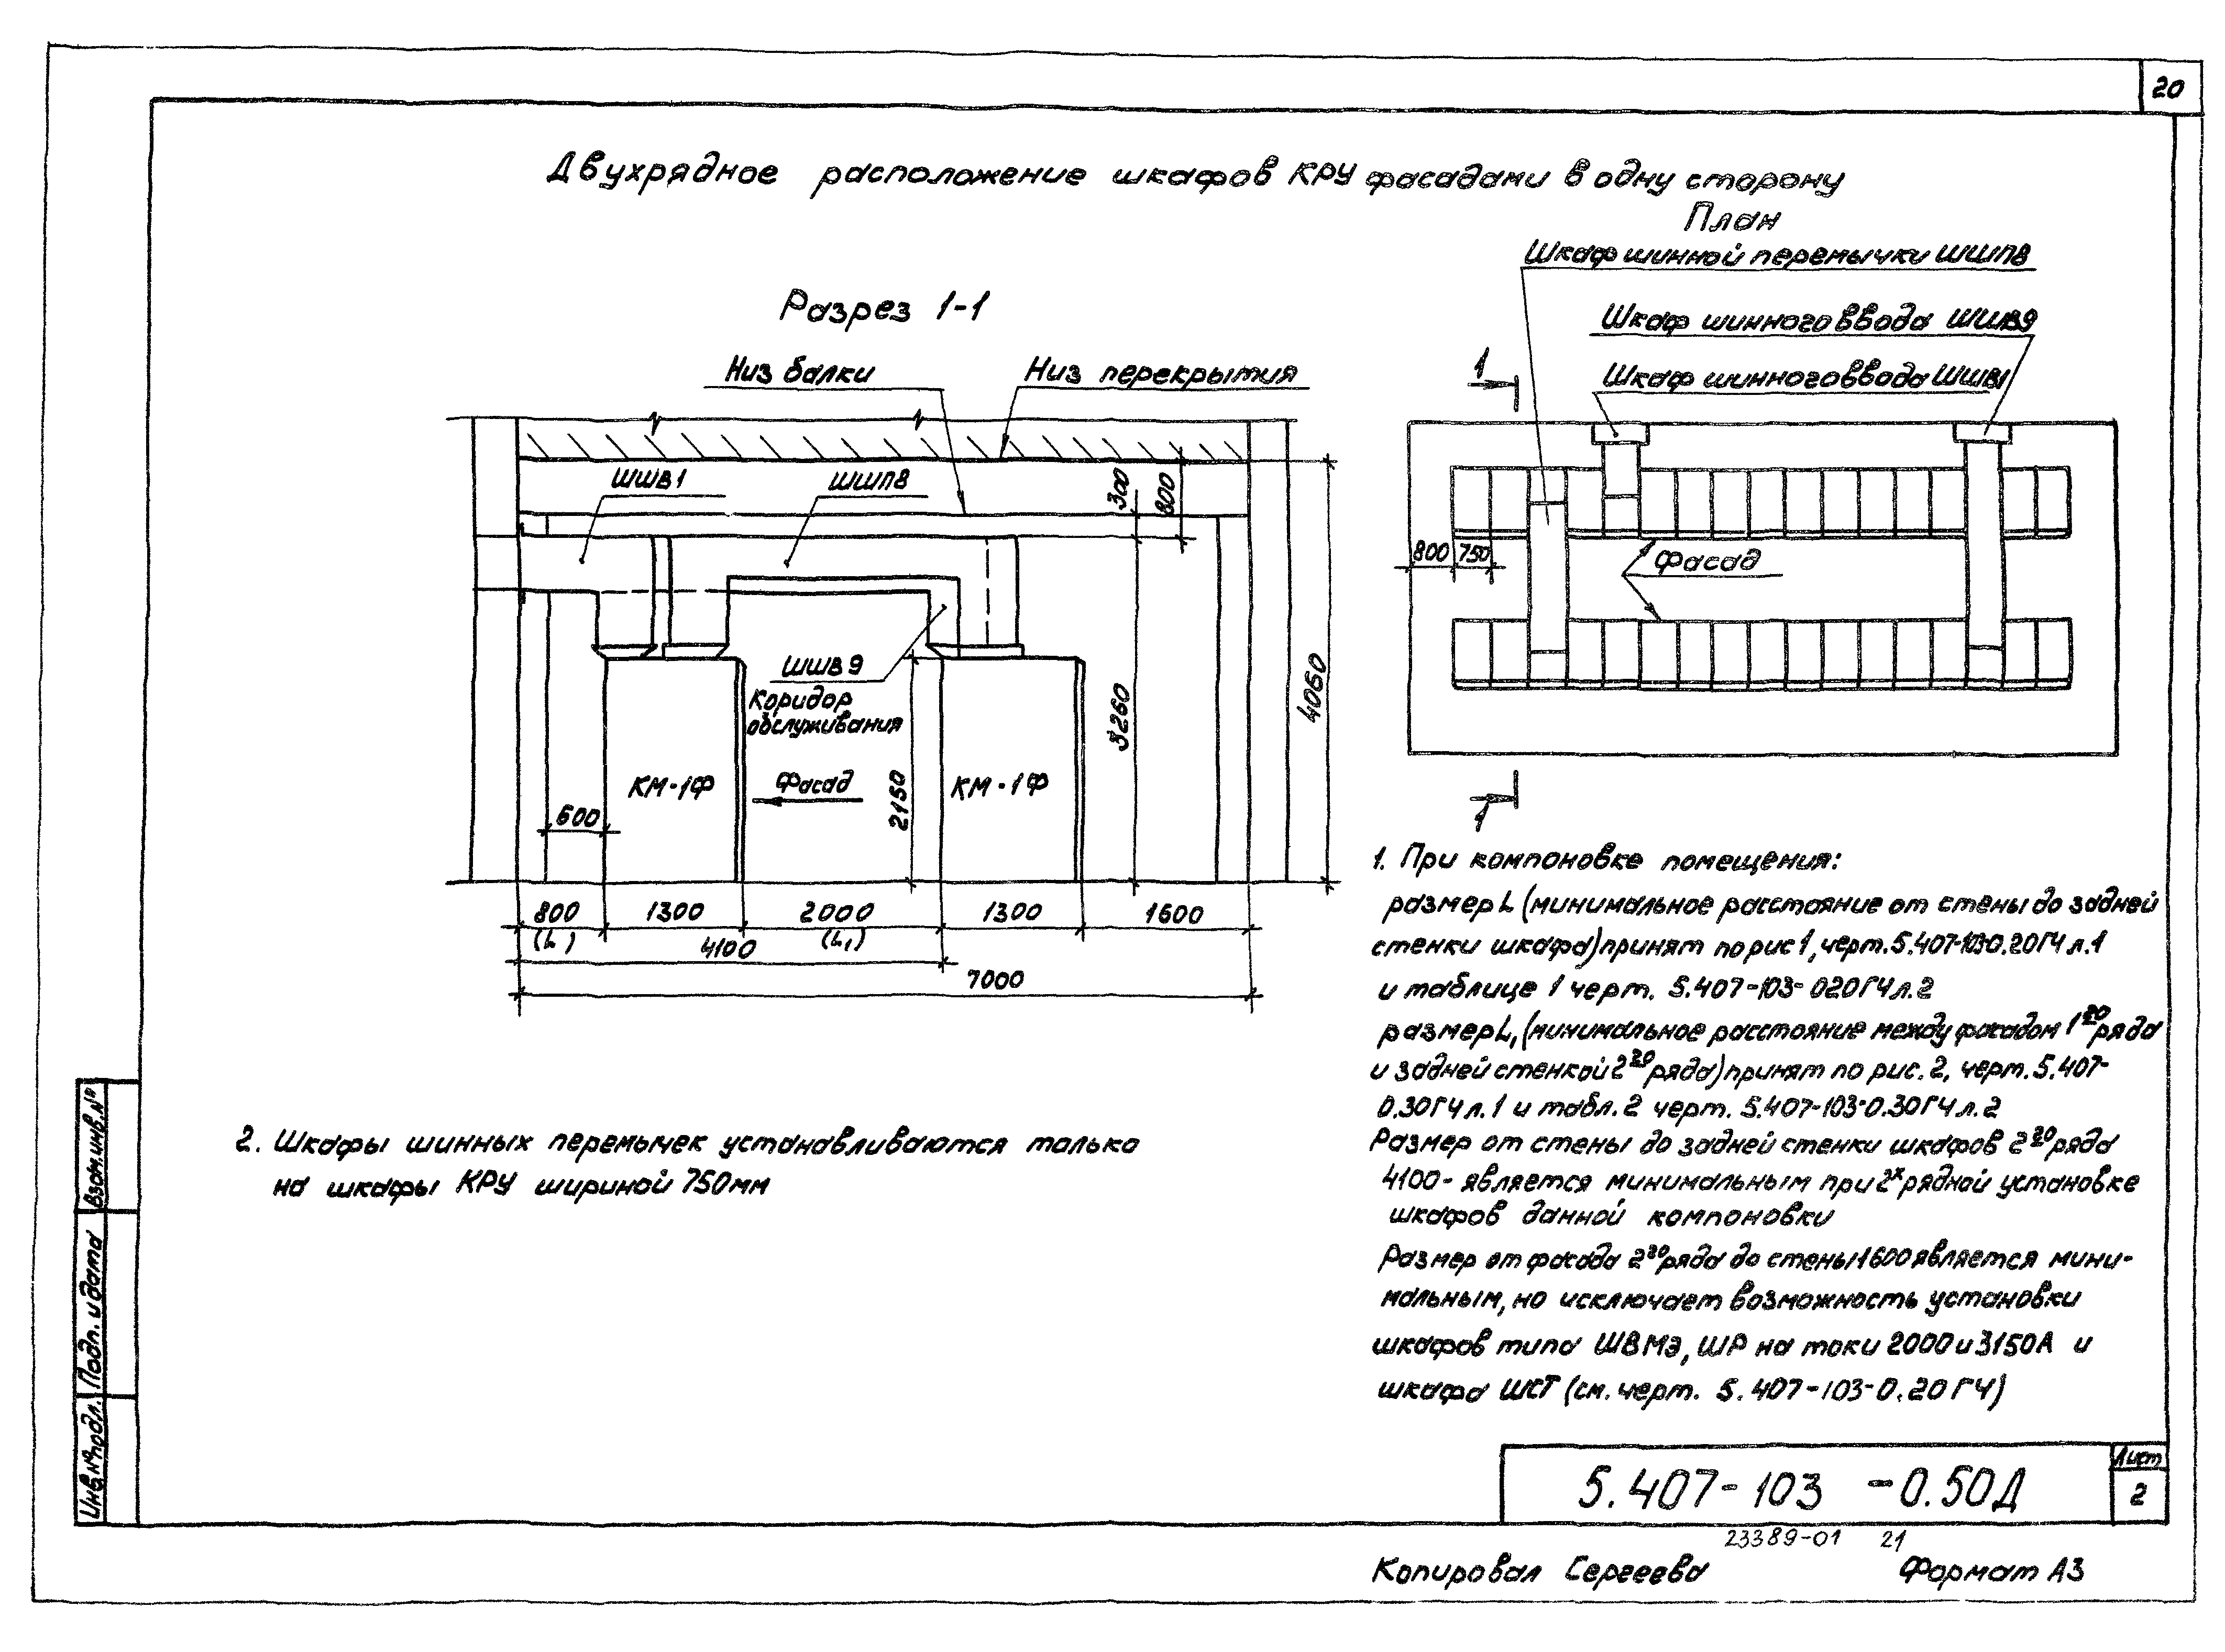 20
Двухрядное расположение шкафов КРУ фасадами в одну сторону
План
Шкаф шинной перемычки ШШП8
Шкаф шинного ввода ШШВ9
Шкаф шинного ввода ШШВ1
1
800
750
Фасад
1
Разрез 1-1
Низ балки
Низ перекрытия
ШШВ1
ШШП8
300
800
ШШВ9
Коридор
обслуживания
КМ-1Ф
Фасад
КМ-1Ф
600
2150
3260
4060
800
1300
2000
1300
1600
(L)
4100
(L₁)
7000
1. При компоновке помещения:
размер L (минимальное расстояние от стены до задней
стенки шкафа) принят по рис 1, черт. 5.407-103-0.20ГЧ л.1
и таблице 1 черт. 5.407-103-020ГЧ л.2
размер L₁ (минимальное расстояние между фасадом 1го ряда
и задней стенкой 2го ряда) принят по рис. 2, черт. 5.407-
0.30ГЧ л.1 и табл. 2 черт. 5.407-103-0.30ГЧ л.2
Размер от стены до задней стенки шкафов 2го ряда
4100 - является минимальным при 2х рядной установке
шкафов данной компоновки
Размер от фасада 2го ряда до стены 1600 является мини-
мальным, но исключает возможность установки
шкафов типа ШВМЭ, ШР на токи 2000 и 3150А и
шкафа ШСТ (см. черт. 5.407-103-0.20ГЧ)
2. Шкафы шинных перемычек устанавливаются только
на шкафы КРУ шириной 750мм
Взам. инв. №
Подп. и дата
Инв. № подл.
5.407-103 -0.50Д
Лист
2
23389-01 21
Копировал Сергеева
Формат А3